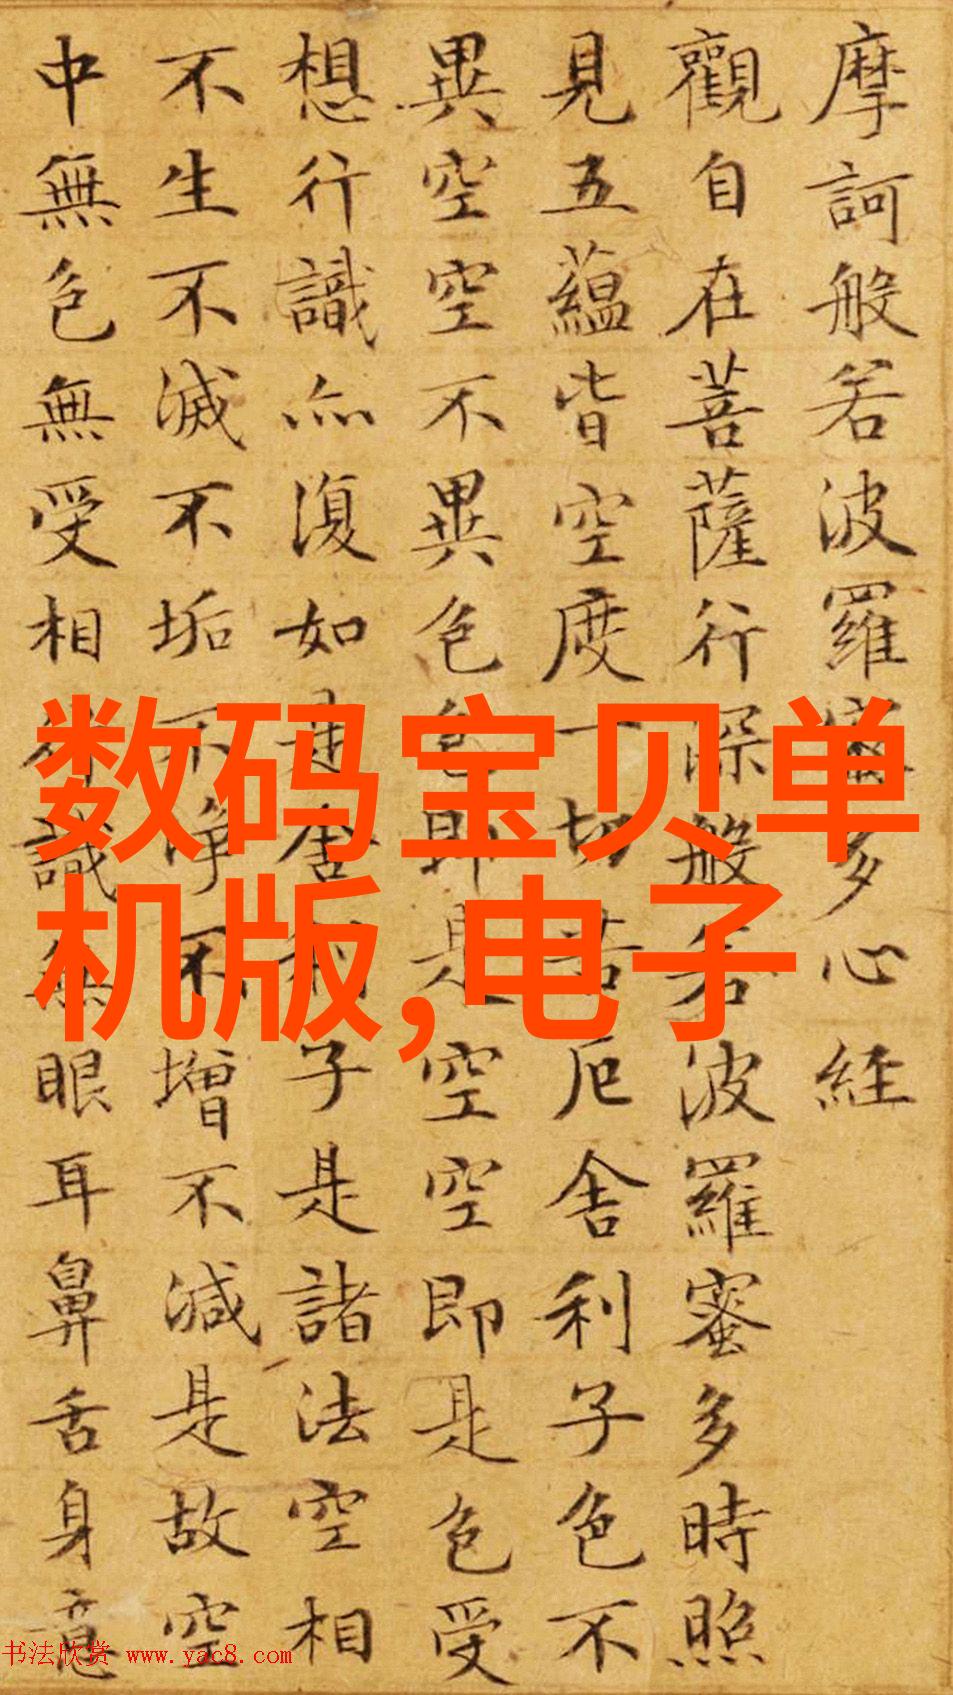 摩訶般若波羅蜜多心經
觀自在菩薩行深般若波羅蜜多時照
見五蘊皆空度一切苦厄舍利子色不
異空空不異色色即是空空即是色受
想行識亦復如是舍利子是諸法空相
不生不滅不垢不淨不增不減是故空
中無色無受相行識無眼耳鼻舌身意
数码宝贝单
机版,电子
书法欣赏 www.yac8.com